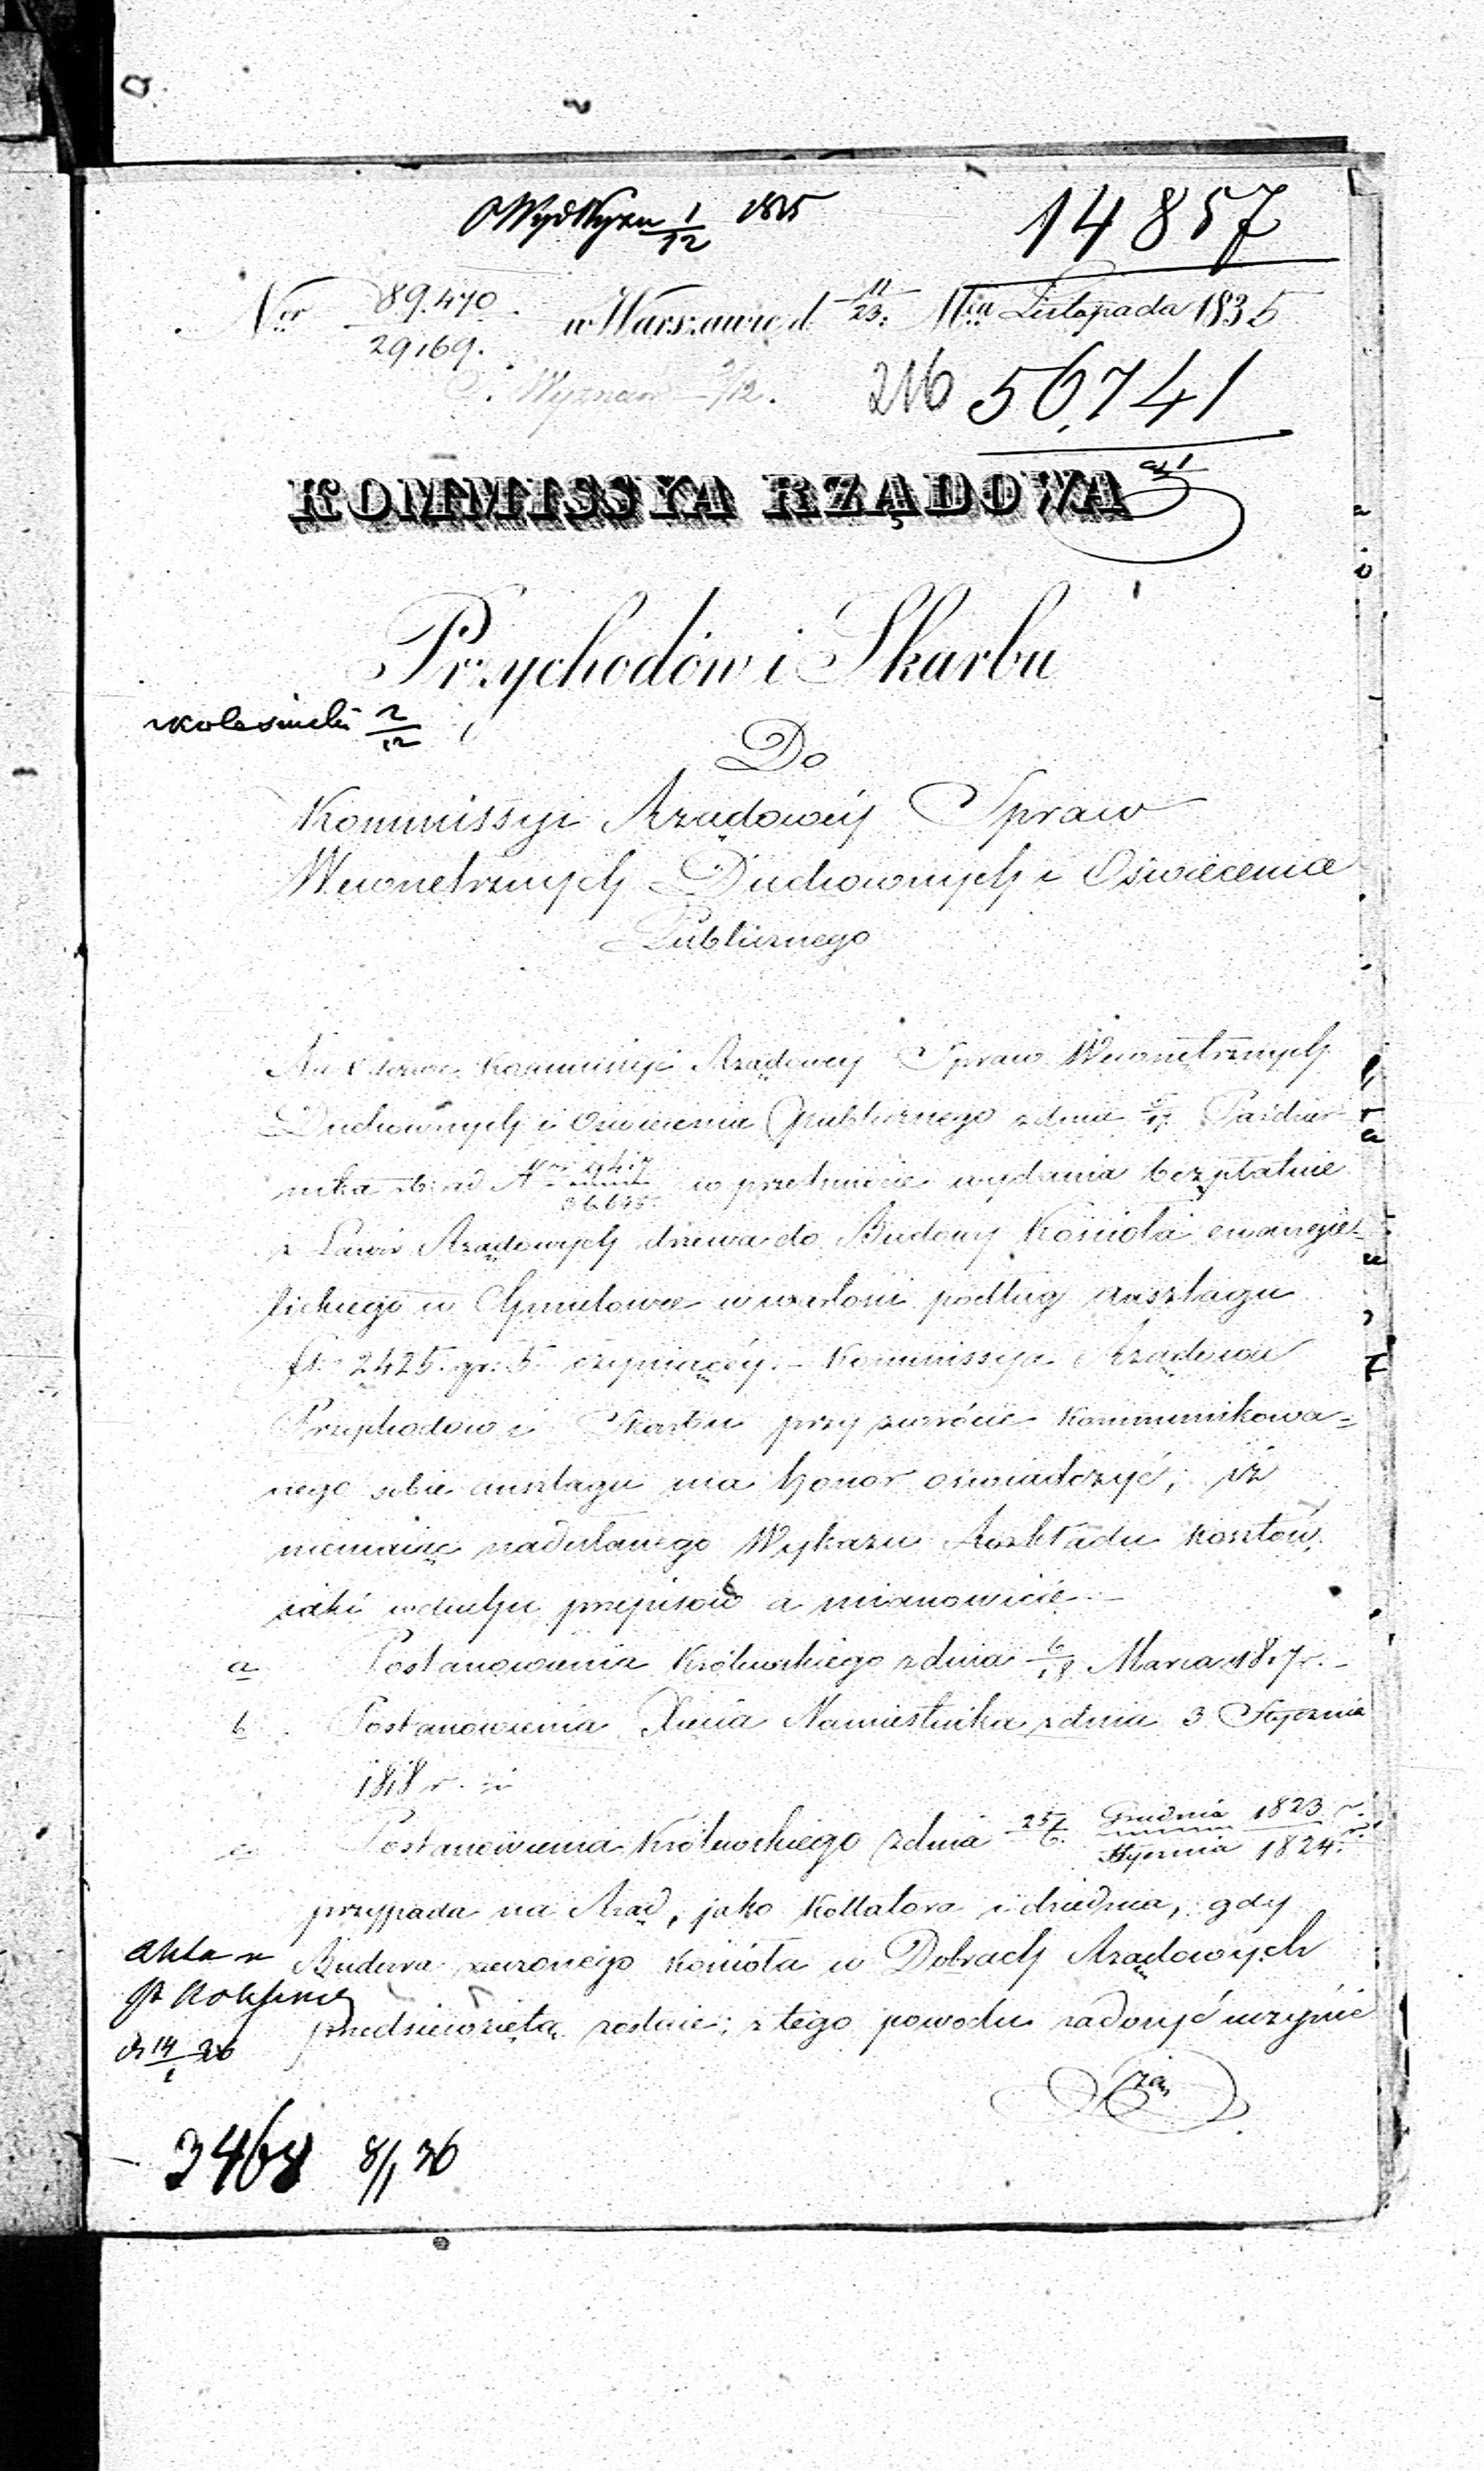 14857
Nr 89.470 / 29169. w Warszawie d 11/23. Mca Listopada 1835
Wyznań 2/12. 216 56,741
KOMMISSYA RZĄDOWA
Przychodów i Skarbu
2/12
Do
Kommissyi Rządowéy Spraw
Wewnetrznych Duchownych i Oświecenia
Publicznego
Na Odezwę Kommissyi Rządowey Spraw Wewnętrznych
Duchownych i Oświecenia Publicznego z dnia Paździer-
nika w przedmiocie wydania bezpłatnie
z Lasów Rządowych drzewa do Budowy Kościoła ewangie-
lickiego w wartości podług anszlagu
fl. 2425. gr. 5. czyniącéy. – Kommissya Rządowa
Przychodów i Skarbu przy zwrócie kommunikowa=
nego sobie anszlagu ma honor oświadczyć, iż
niemaiąc nadesłanego Wykazu Rozkładu kosztów,
iaki wduchu przepisów a mianowicie –
a Postanowienia Królewskiego z dnia 6/18 Marca 1817 r. –
b Postanowienia Xięcia Namiestnika z dnia 3 Stycznia
1818 r. i
c. Postanowienia Królewskiego z dnia 25/6. Grudnia 1823 r. / Stycznia 1824. r.
przypada na Rząd, jako Kollatora i dziedzica, gdy
Budowa rzeczonego kościoła w Dobrach Rządowych
przedsiewziętą zostaie; z tego powodu zadosyć uczynić
Akta
3468 8/1 36